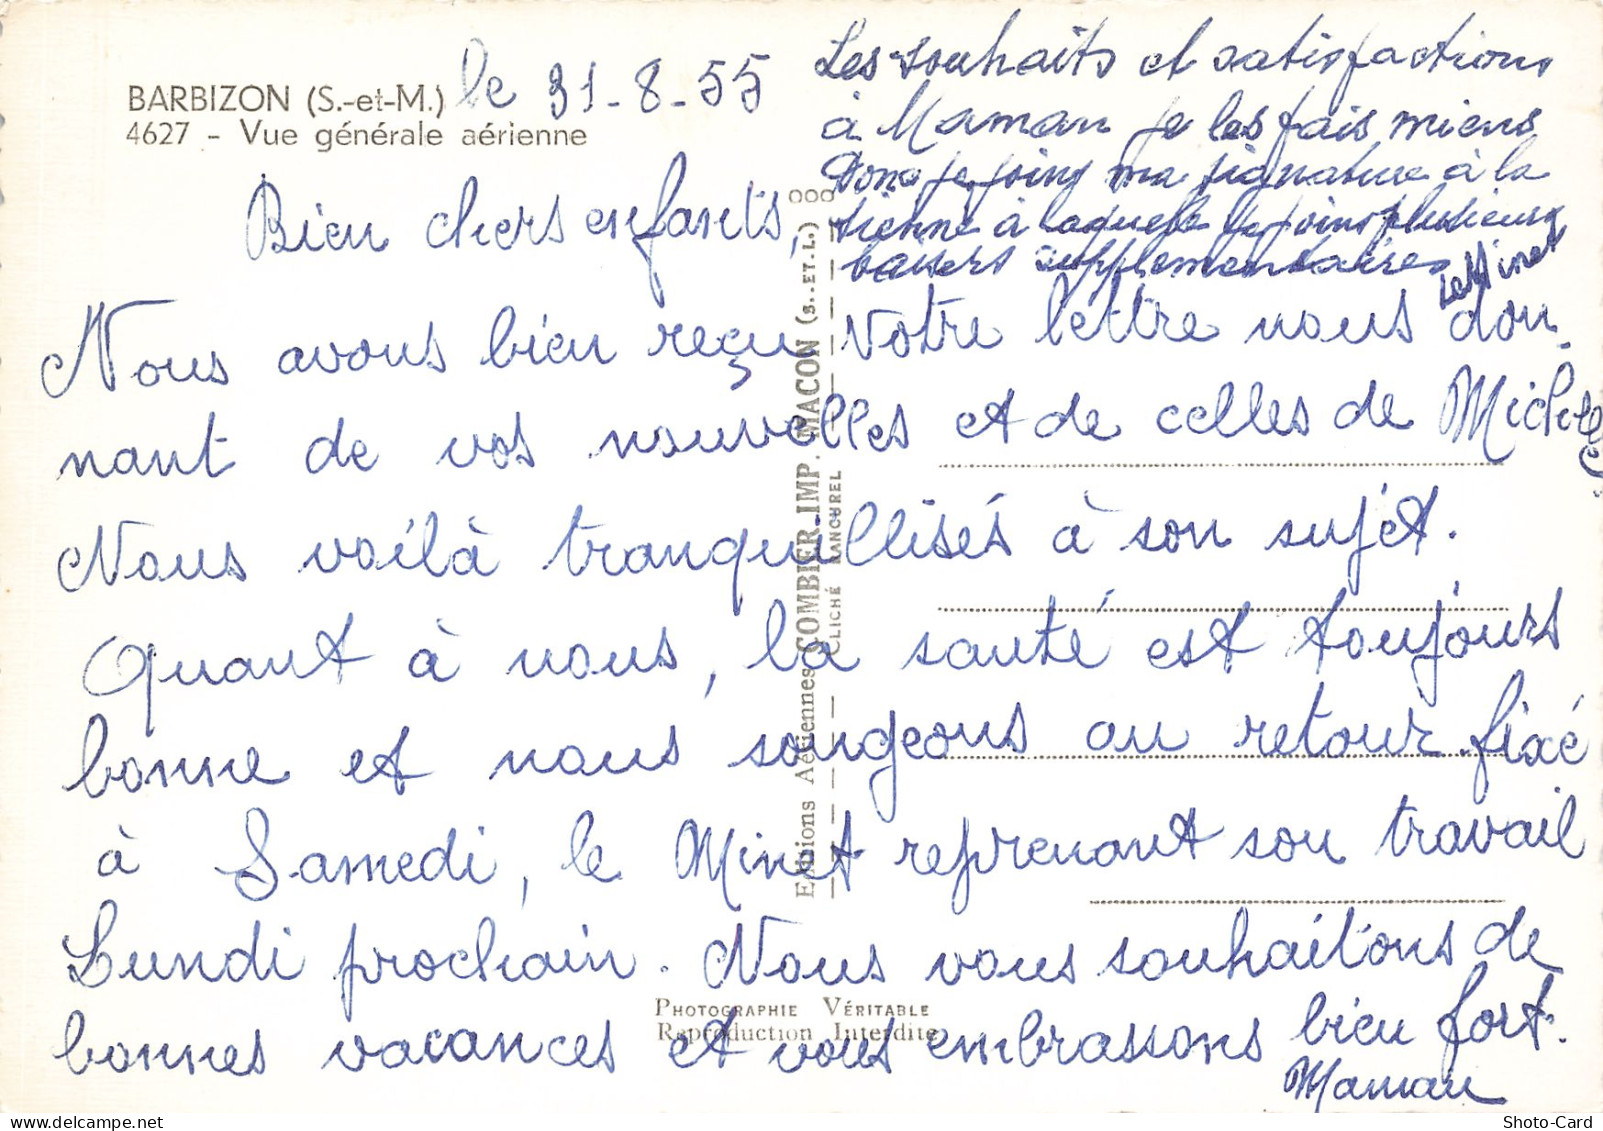 BARBIZON (S.-et-M.) le 31-8-55
4627 - Vue générale aérienne
Bien chers enfants,
Nous avons bien reçu votre lettre nous don-
nant de vos nouvelles et de celles de Michel.
Nous voilà tranquillisés à son sujet.
Quant à nous, la santé est toujours
bonne et nous songeons au retour fixé
à Samedi, le Minet reprenant son travail
Lundi prochain. Nous vous souhaitons de
bonnes vacances et vous embrassons bien fort.
Maman
Les souhaits et satisfactions
à Maman je les fais miens
Donc je joins ma signature à la
sienne à laquelle je joins plusieurs
baisers supplémentaires
le Minet
Editions Aériennes COMBIER IMP. MACON (S.-ET-L.)
CLICHÉ RANCUREL
PHOTOGRAPHIE VÉRITABLE
Reproduction Interdite
Shoto-Card